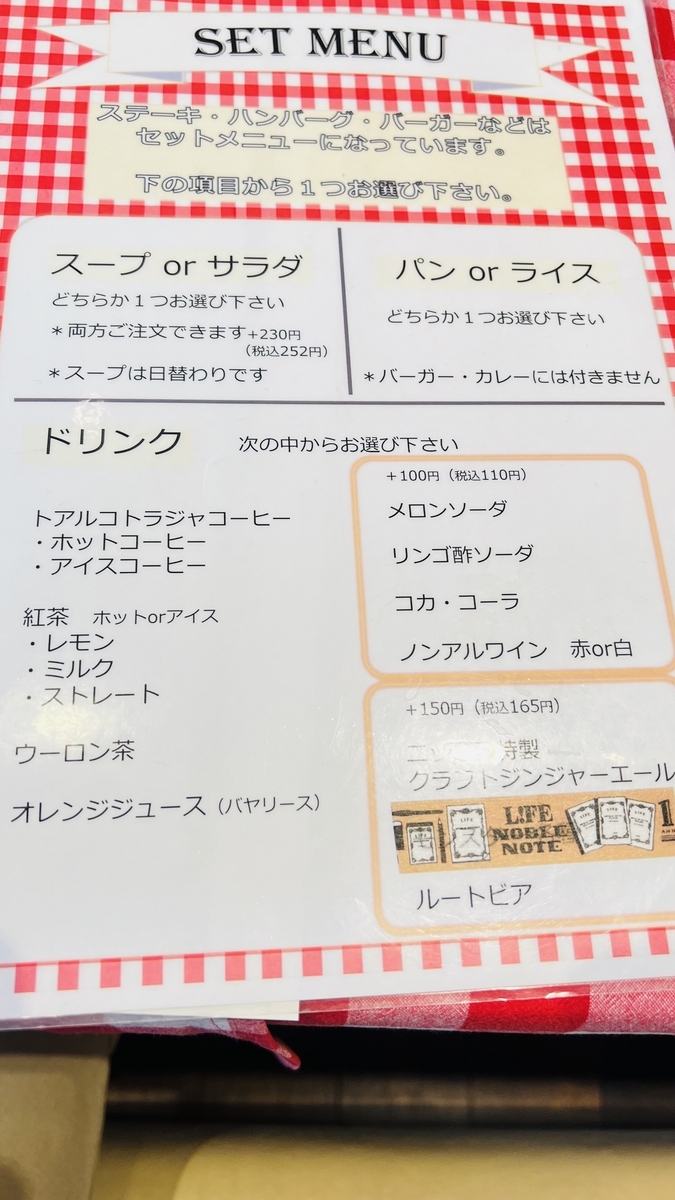 SET MENU
ステーキ・ハンバーグ・バーガーなどは
セットメニューになっています。
下の項目から１つお選び下さい。
スープ or サラダ
どちらか１つお選び下さい
＊両方ご注文できます+230円
（税込252円）
＊スープは日替わりです
パン or ライス
どちらか１つお選び下さい
＊バーガー・カレーには付きません
ドリンク　次の中からお選び下さい
トアルコトラジャコーヒー
・ホットコーヒー
・アイスコーヒー
紅茶　ホットorアイス
・レモン
・ミルク
・ストレート
ウーロン茶
オレンジジュース（バヤリース）
+100円（税込110円）
メロンソーダ
リンゴ酢ソーダ
コカ・コーラ
ノンアルワイン　赤or白
+150円（税込165円）
特製
クラフトジンジャーエール
L!FE
NOBLE
NOTE
ルートビア